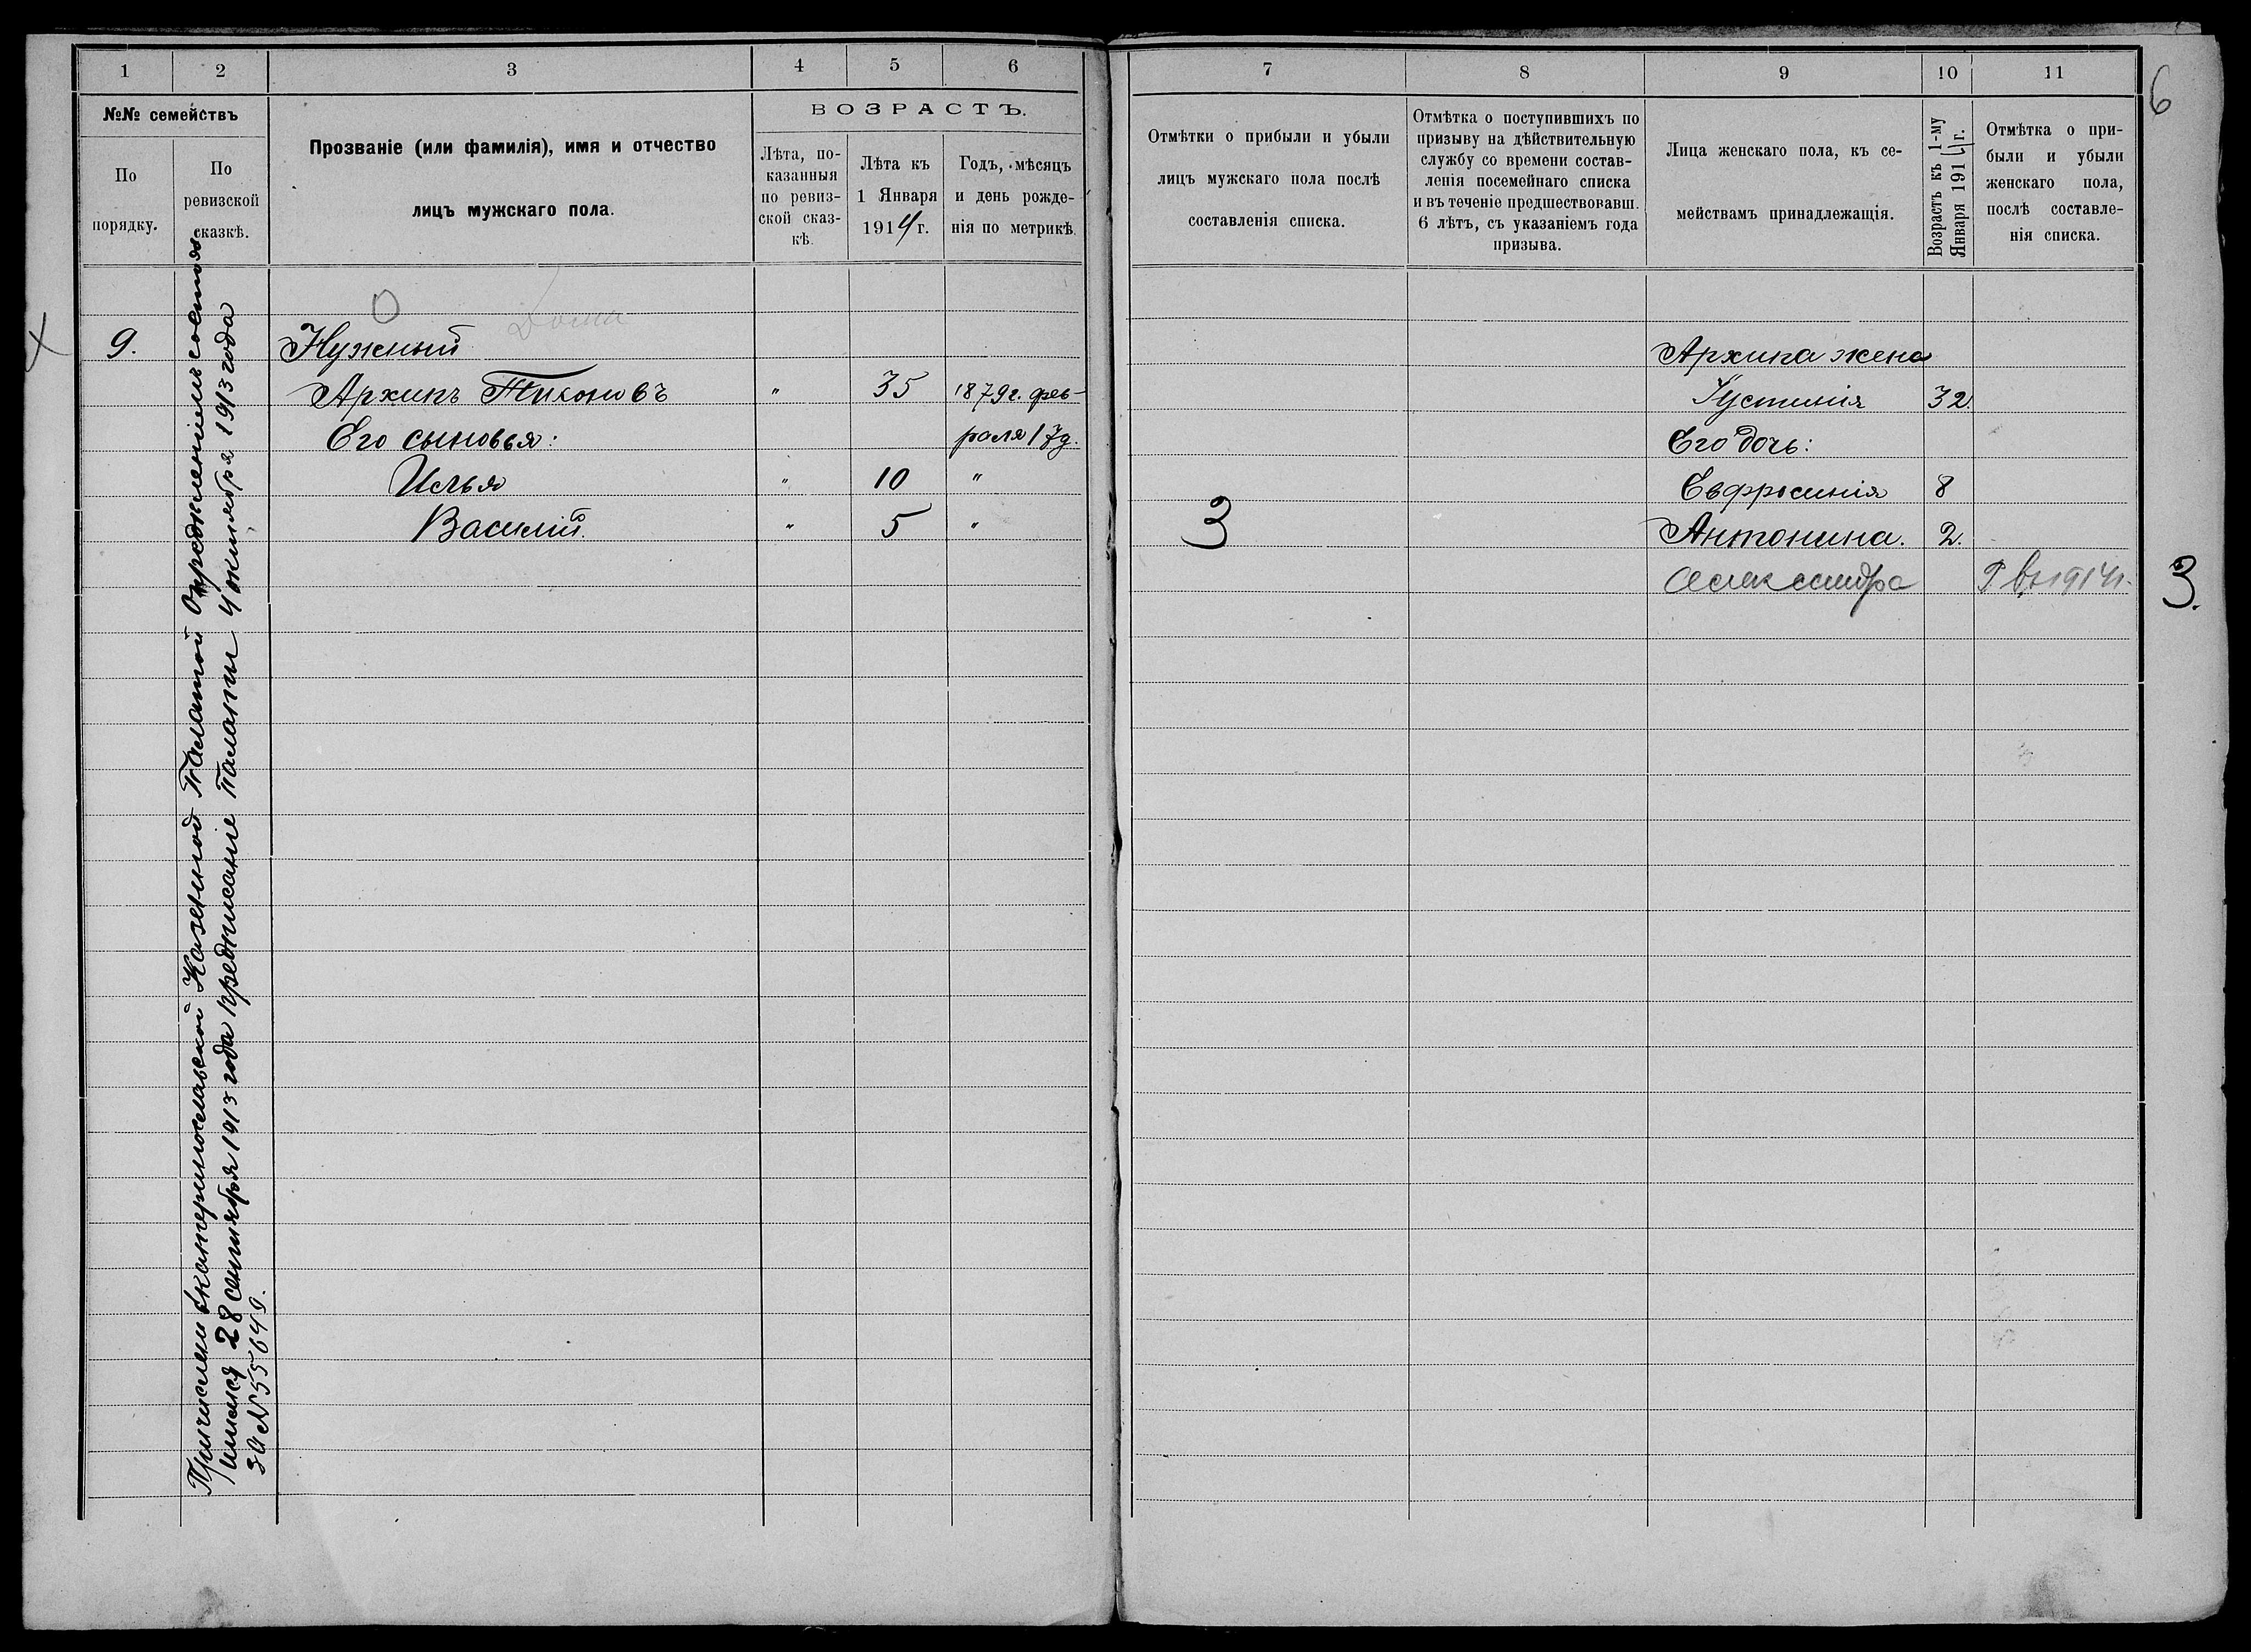 1 2 3 4 5 6
№№ семействъ
По
порядку.
По
ревизской
сказкѣ.
Прозваніе (или фамилія), имя и отчество
лицъ мужскаго пола.
ВОЗРАСТЪ.
Лѣта, по-
казанныя
по ревиз-
ской сказ-
кѣ.
Лѣта къ
1 Января
1914 г.
Годъ, мѣсяцъ
и день рожде-
нія по метрикѣ.
Причислен Екатеринославской Казенной Палатой Опредѣленіемъ состояв-
шимся 28 сентября 1913 года предписаніе Палаты 4 октября 1913 года
за №55649.
Дома
9. Нужный
Архипъ Тихоновъ " 35 1879г. фев-
Его сыновья: раля 17д.
Илья " 10 "
Василій. " 5 "
7 8 9 10 11
6
Отмѣтки о прибыли и убыли
лицъ мужскаго пола послѣ
составленія списка.
Отмѣтка о поступившихъ по
призыву на дѣйствительную
службу со времени состав-
ленія посемейнаго списка
и въ теченіе предшествовавш.
6 лѣтъ, съ указаніемъ года
призыва.
Лица женскаго пола, къ се-
мействамъ принадлежащія.
Возрастъ къ 1-му
Января 1914 г.
Отмѣтка о при-
были и убыли
женскаго пола,
послѣ составле-
нія списка.
Архипа жена
Іустинія 32.
Его дочь:
Евфросинія 8
3 Антонина. 2.
Александра Р въ 1914г.
3.